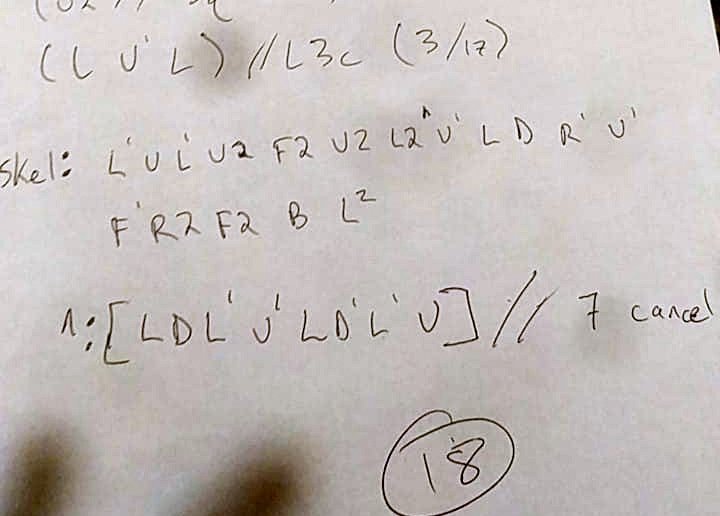 (L U' L) // L3c (3/17)
Skel: L' U L' U2 F2 U2 L2 ^ U' L D R' U'
F' R2 F2 B L2
^: [L D L' U' L D' L' U] // 7 cancel
18